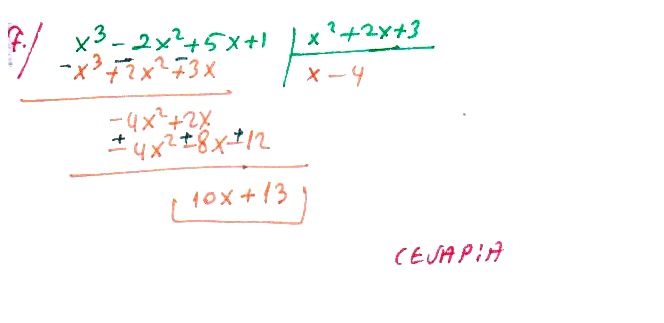 7./ x³ - 2x² + 5x + 1 | x² + 2x + 3
- x³ + 2x² + 3x x - 4
- 4x² + 2x
- 4x² - 8x - 12
10x + 13
CEVAP:A